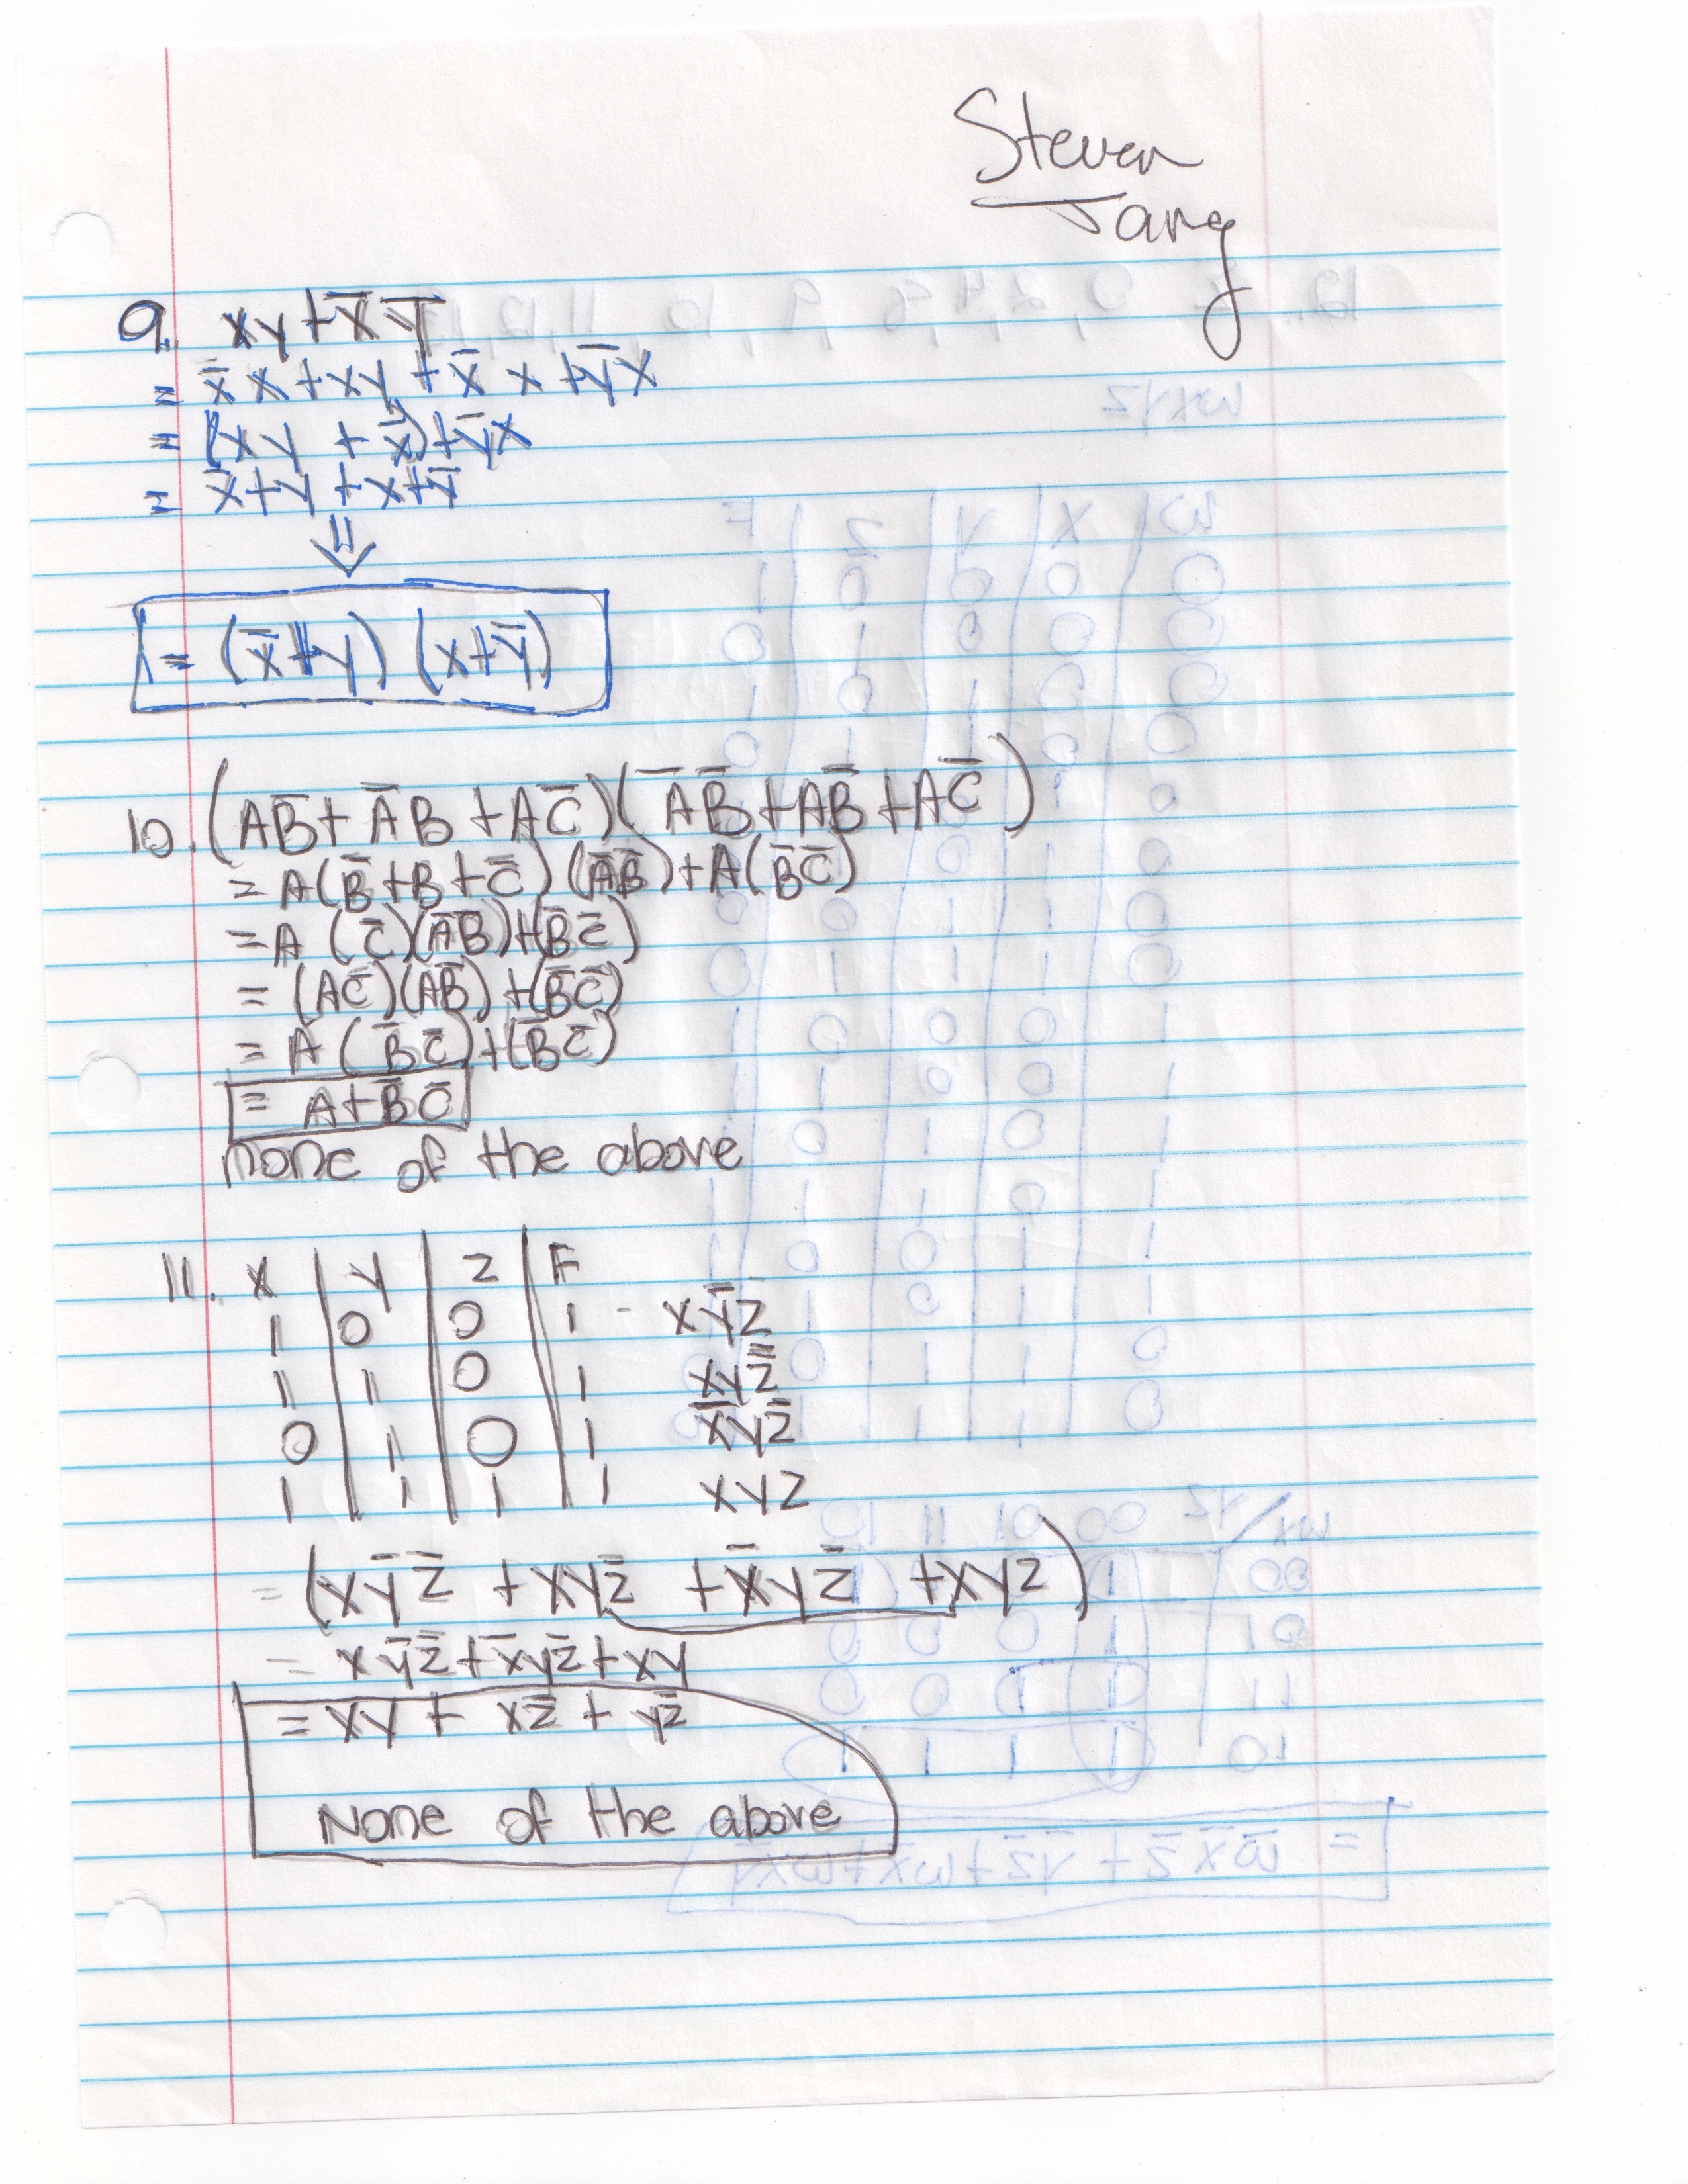 Steven
Jang
9. xy + x̄ ȳ
= x̄ x + xy + x̄ x + ȳ x
= (xy + x̄) + ȳx
= x̄ + y + x + ȳ
⇓
= (x̄ + y) (x + ȳ)
10. (AB̄ + ĀB + AC̄)(ĀB̄ + AB̄ + AC̄)
= A(B̄ + B + C̄) (ĀB̄) + A(B̄C̄)
= A (C̄)(ĀB̄) + (B̄C̄)
= (AC̄)(AB̄) + (B̄C̄)
= A (B̄C̄) + (B̄C̄)
= A + B̄C̄
none of the above
11. x | y | z | F
1 | 0 | 0 | 1 - xȳz̄
1 | 1 | 0 | 1 xyz̄
0 | 1 | 0 | 1 x̄yz̄
1 | 1 | 1 | 1 xyz
= (xȳz̄ + xyz̄ + x̄yz̄ + xyz)
= xȳz̄ + x̄yz̄ + xy
= xy + xz̄ + yz̄
None of the above